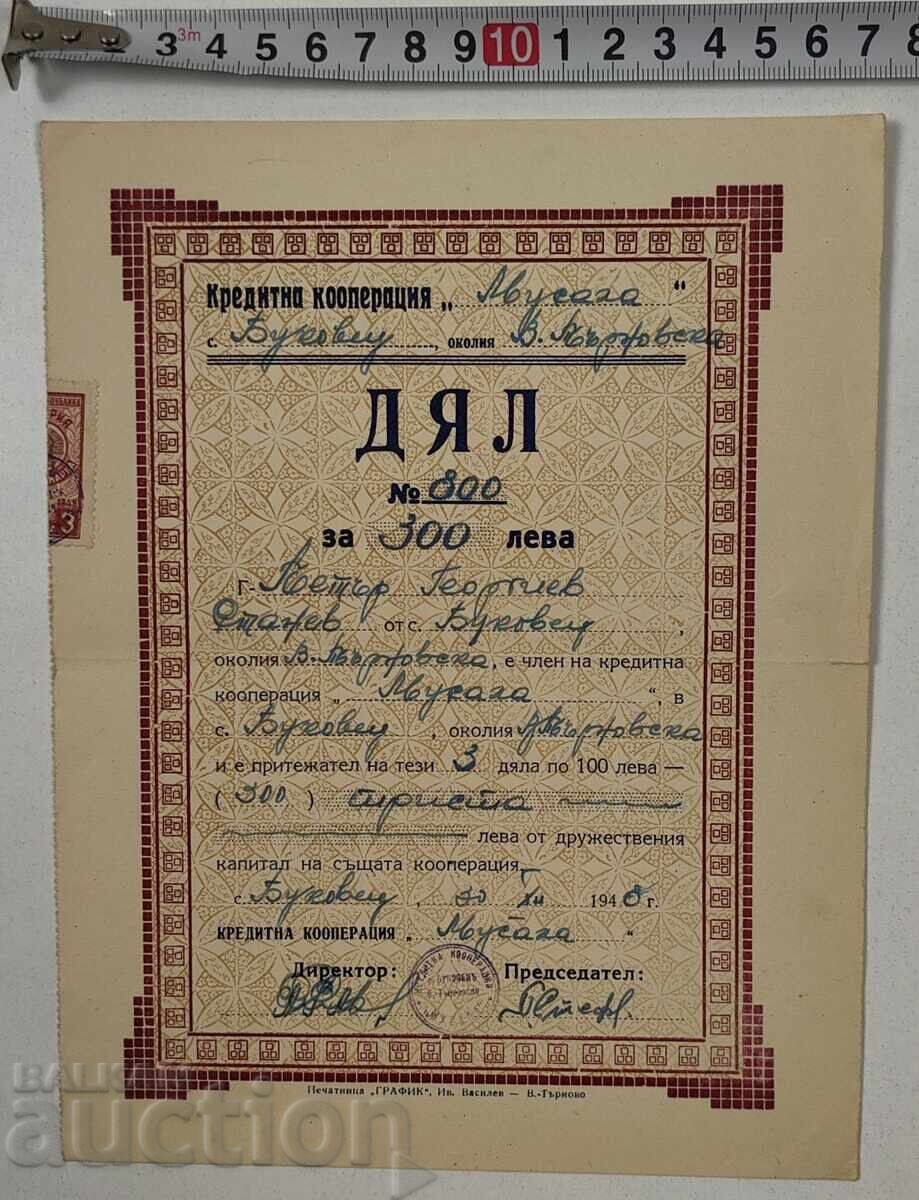 3m
3 4 5 6 7 8 9 10 1 2 3 4 5 6 7 8
Кредитна кооперация „ Мусала “
с. Буковец, околия В. Търновска
БЛИКА
РИЯ
3
ДЯЛ
№ 800
за 300 лева
Г- Петър Георгиев
Станев от с. Буковец,
околия В. Търновска, е член на кредитна
кооперация „ Мусала “, в
с. Буковец, околия В Търновска
и е притежател на тези 3 дяла по 100 лева —
( 300 ) триста
лева от дружествения
капитал на същата кооперация.
с. Буковец, 30 XII 1948 г.
КРЕДИТНА КООПЕРАЦИЯ „ Мусала “
Директор: Председател:
Печатница „ГРАФИК“, Ив. Василев — В.-Търново
BALKAN
auction